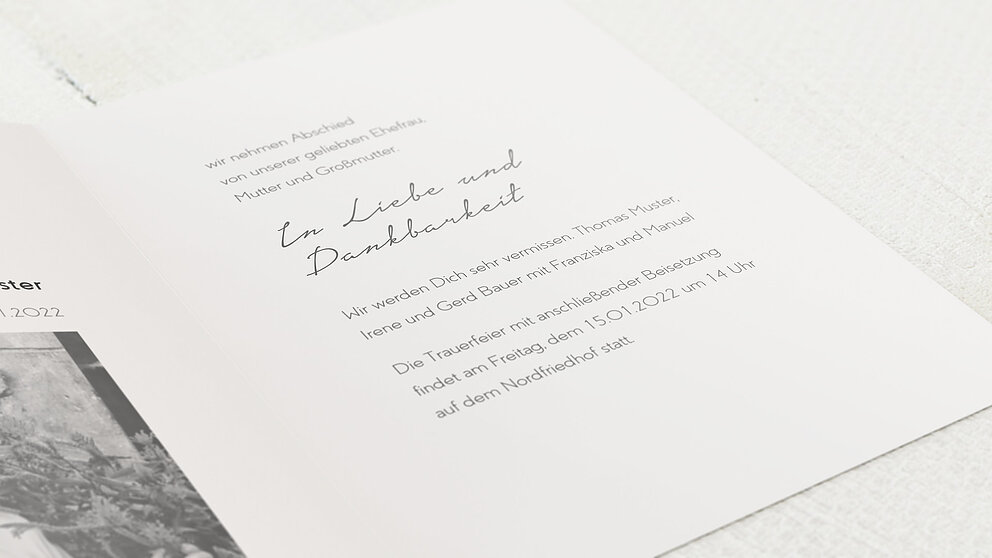 ster
1.2022
wir nehmen Abschied
von unserer geliebten Ehefrau,
Mutter und Großmutter.
In Liebe und
Dankbarkeit
Wir werden Dich sehr vermissen. Thomas Muster,
Irene und Gerd Bauer mit Franziska und Manuel
Die Trauerfeier mit anschließender Beisetzung
findet am Freitag, dem 15.01.2022 um 14 Uhr
auf dem Nordfriedhof statt.